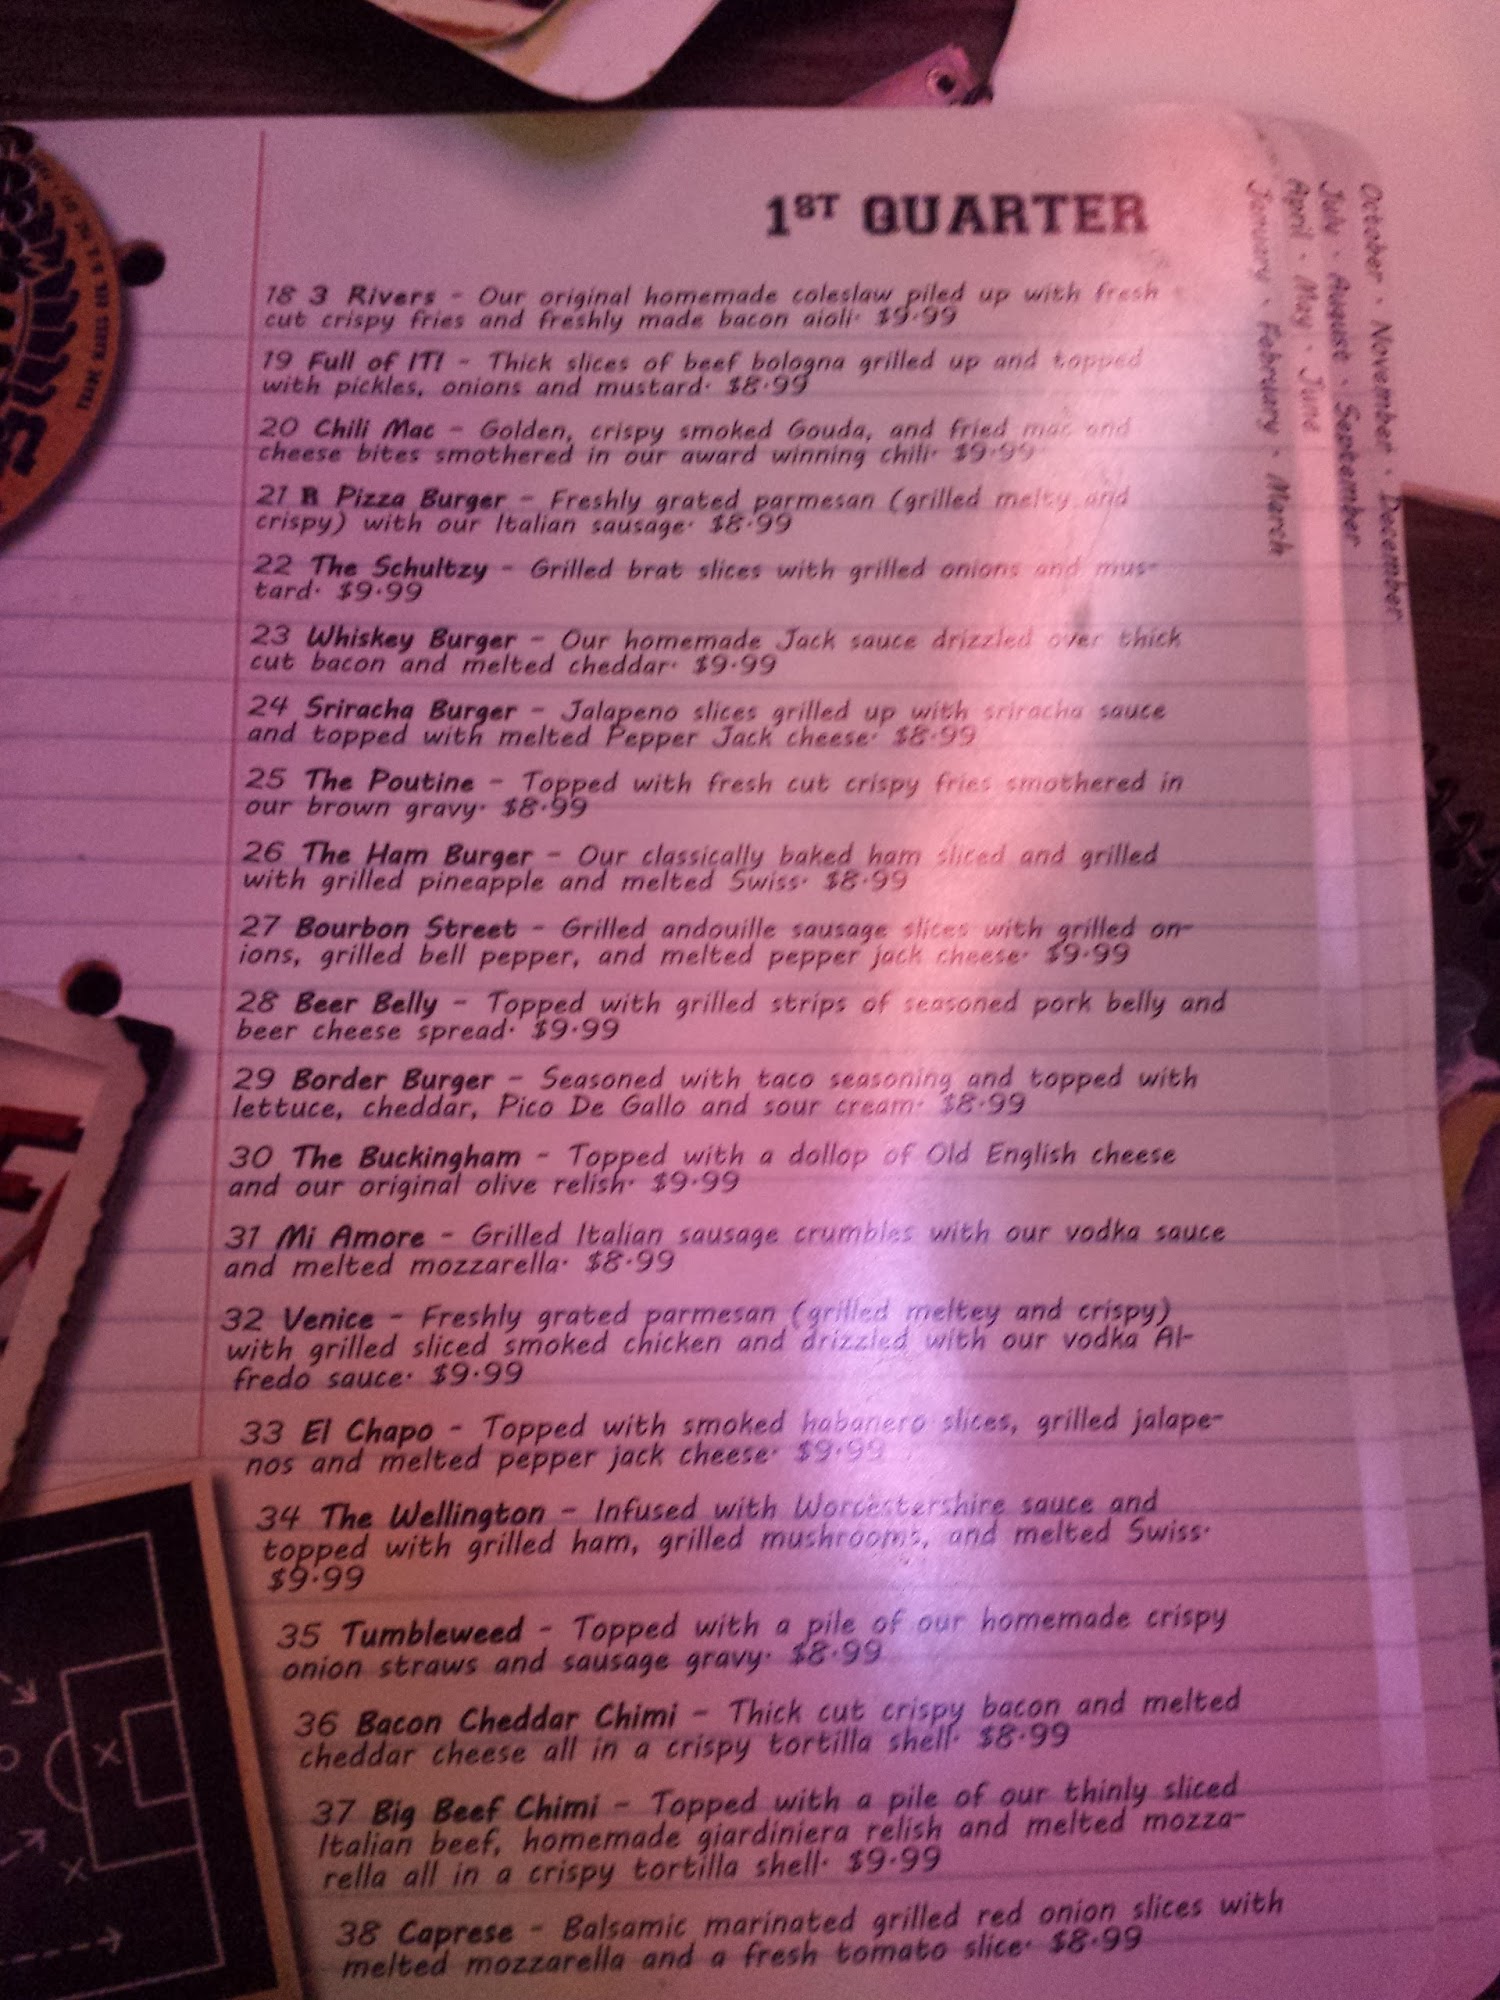 1ST QUARTER
18 3 Rivers - Our original homemade coleslaw piled up with fresh
cut crispy fries and freshly made bacon aioli. $9.99
19 Full of IT! - Thick slices of beef bologna grilled up and topped
with pickles, onions and mustard. $8.99
20 Chili Mac - Golden, crispy smoked Gouda, and fried mac and
cheese bites smothered in our award winning chili. $9.99
21 R Pizza Burger - Freshly grated parmesan (grilled melty and
crispy) with our Italian sausage. $8.99
22 The Schultzy - Grilled brat slices with grilled onions and mus-
tard. $9.99
23 Whiskey Burger - Our homemade Jack sauce drizzled over thick
cut bacon and melted cheddar. $9.99
24 Sriracha Burger - Jalapeno slices grilled up with sriracha sauce
and topped with melted Pepper Jack cheese. $8.99
25 The Poutine - Topped with fresh cut crispy fries smothered in
our brown gravy. $8.99
26 The Ham Burger - Our classically baked ham sliced and grilled
with grilled pineapple and melted Swiss. $8.99
27 Bourbon Street - Grilled andouille sausage slices with grilled on-
ions, grilled bell pepper, and melted pepper jack cheese. $9.99
28 Beer Belly - Topped with grilled strips of seasoned pork belly and
beer cheese spread. $9.99
29 Border Burger - Seasoned with taco seasoning and topped with
lettuce, cheddar, Pico De Gallo and sour cream. $8.99
30 The Buckingham - Topped with a dollop of Old English cheese
and our original olive relish. $9.99
31 Mi Amore - Grilled Italian sausage crumbles with our vodka sauce
and melted mozzarella. $8.99
32 Venice - Freshly grated parmesan (grilled meltey and crispy)
with grilled sliced smoked chicken and drizzled with our vodka Al-
fredo sauce. $9.99
33 El Chapo - Topped with smoked habanero slices, grilled jalape-
nos and melted pepper jack cheese. $9.99
34 The Wellington - Infused with Worcestershire sauce and
topped with grilled ham, grilled mushrooms, and melted Swiss.
$9.99
35 Tumbleweed - Topped with a pile of our homemade crispy
onion straws and sausage gravy. $8.99
36 Bacon Cheddar Chimi - Thick cut crispy bacon and melted
cheddar cheese all in a crispy tortilla shell. $8.99
37 Big Beef Chimi - Topped with a pile of our thinly sliced
Italian beef, homemade giardiniera relish and melted mozza-
rella all in a crispy tortilla shell. $9.99
38 Caprese - Balsamic marinated grilled red onion slices with
melted mozzarella and a fresh tomato slice. $8.99
January · February · March
April · May · June
July · August · September
October · November · December